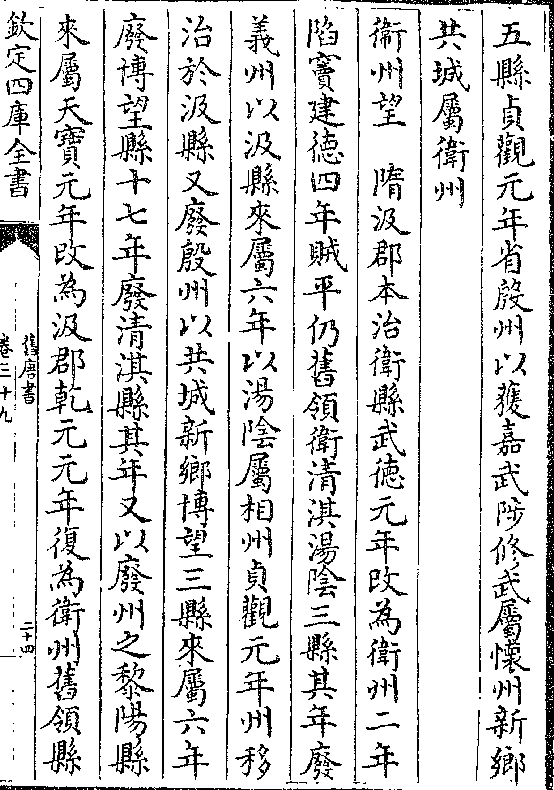 五縣貞觀元年省殷州以獲嘉武陟修武屬懷州新鄉
共城屬衛州
衛州望　隋汲郡本治衛縣武德元年改為衛州二年
陷竇建德四年賊平仍舊領衛清淇湯陰三縣其年廢
義州以汲縣來屬六年以湯陰屬相州貞觀元年州移
治於汲縣又廢殷州以共城新鄉博望三縣來屬六年
廢博望縣十七年廢清淇縣其年又以廢州之黎陽縣
來屬天寶元年改為汲郡乾元元年復為衛州舊領縣
欽定四庫全書
舊唐書
卷三十九
二十四